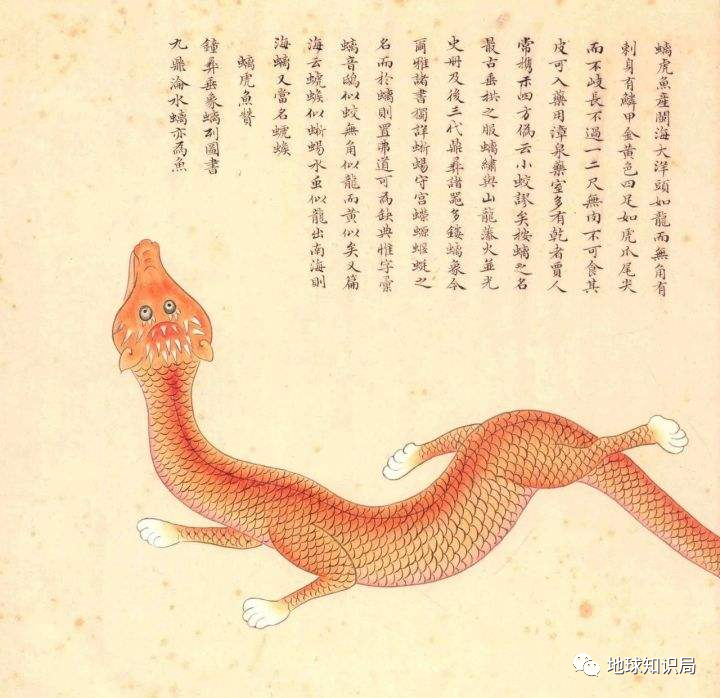 螭虎魚產閩海大洋頭如龍而無角有
刺身有鱗甲金黃色四足如虎爪尾尖
而不岐長不過一二尺無肉不可食其
皮可入藥用漳泉藥室多有乾者賈人
常攜示四方偽云小蛟謬矣按螭之名
最古垂拱之服螭繡與山龍藻火並光
史冊及後三代鼎彝諸器多鏤螭象今
爾雅諸書獨詳蜥蜴守宮蠑螈蝘蜓之
名而於螭則置弗道可為缺典惟字彙
螭音鴟似蛟無角似龍而黃似矣又篇
海云螔䗔似蜥蜴水虫似龍出南海則
海螭又當名螔䗔
螭虎魚贊
鐘彝垂象螭列圖書
九鼎淪水螭亦為魚
地球知识局